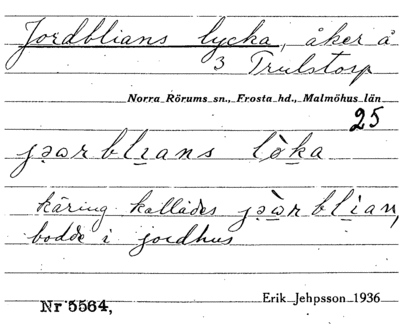 Jordblians lycka, åker å
3 Trulstorp
Norra Rörums sn., Frosta hd., Malmöhus län
25
jəωr blians lòka
käring kallades jə̀ωr blian,
bodde i jordhus
Nr 5564, Erik Jehpsson 1936